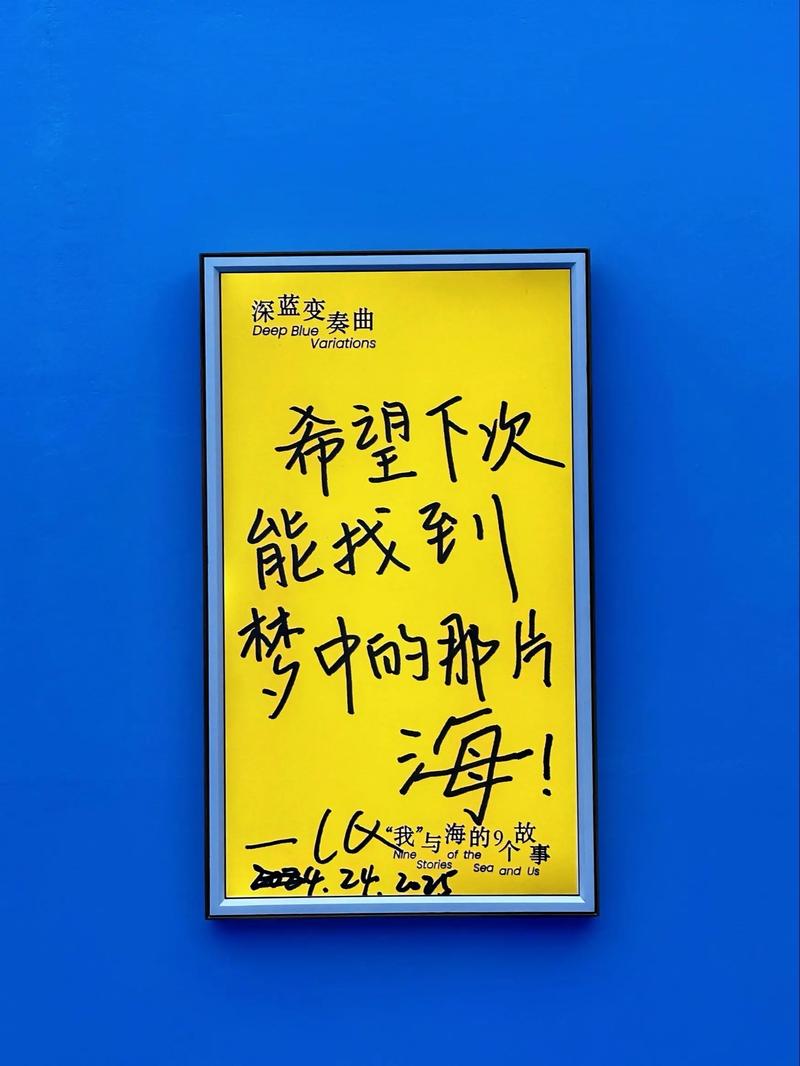 深蓝变奏曲
Deep Blue
Variations
希望下次
能找到
梦中的那片
海!
"我"与海的9个故事
Nine of the
Stories Sea and Us
4.24.2025